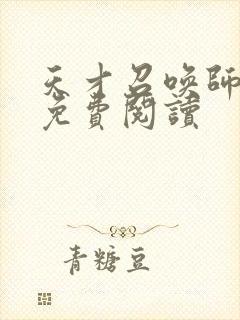 天才召喚師
免費閱讀
青糖豆